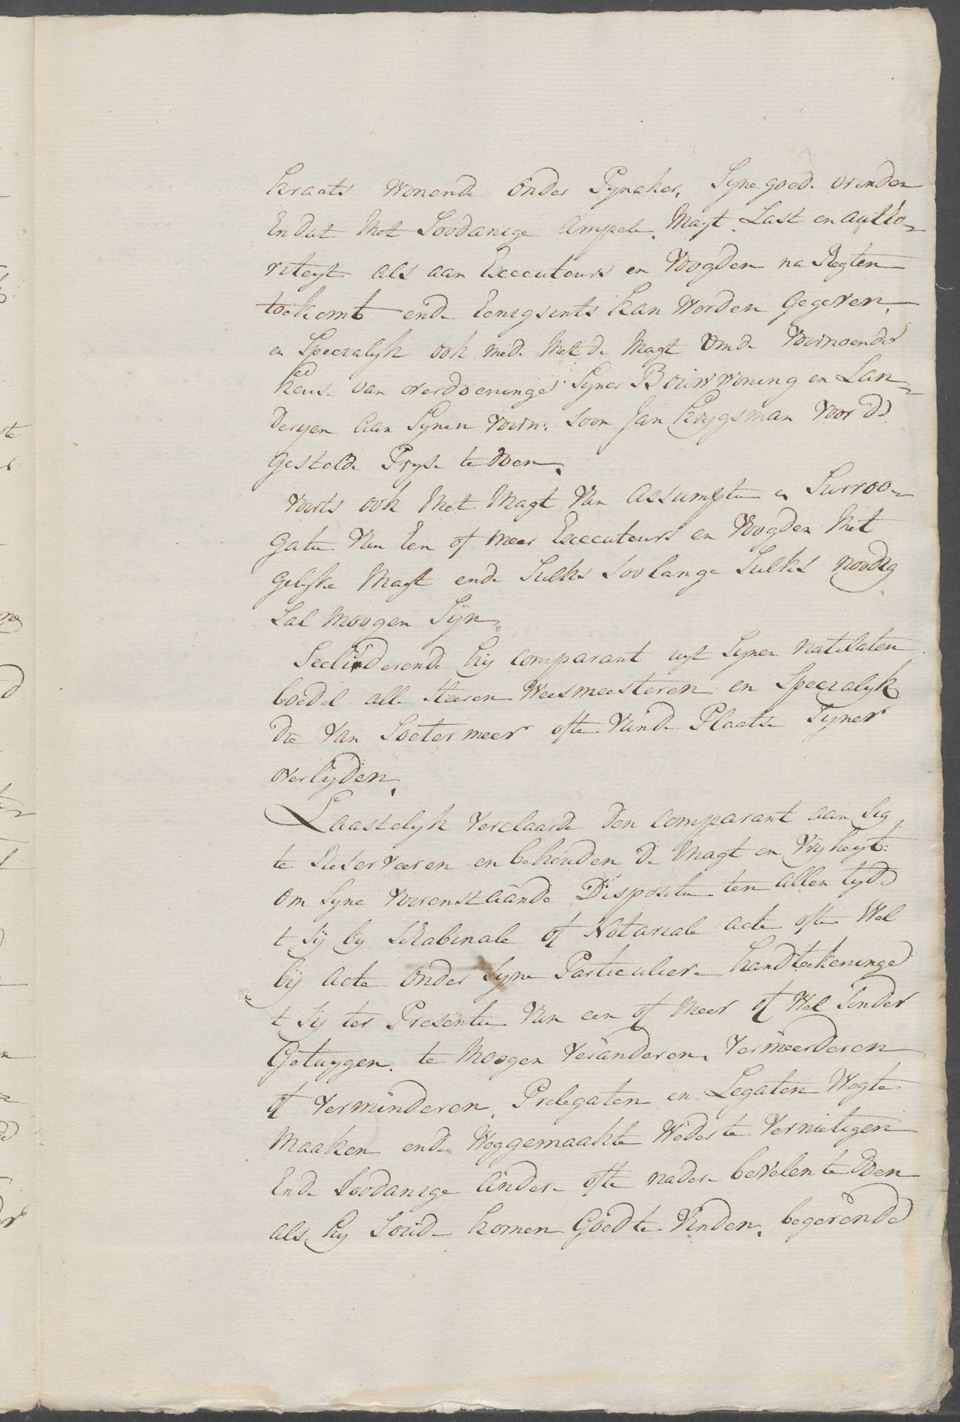 Kraats wonende onder Pynaker, Syne goede vrinden
en dat met Soodanige ampele Magt Last en autho-
riteyt als aan Executeurs en Voogden na Regten
toekomt ende Eenigsints kan worden gegeven,
en Specialyk ook mede met de Magt om de voornoemde
keuse van overdoeninge Syner Bouwwoning en Lan-
deryen aan Synen voorn: Soon Jan Huygsman voor de
gestelde Pryse te doen,
voorts ook met Magt van assumptie en Surroo-
gatie van Een of meer Executeurs en Voogden met
gelyke Magt ende Sulks Soo lange Sulks noodig
Sal moogen Syn,
Secluderende hy comparant uyt Synen natelaten
boedel alle Heeren Weesmeesteren en Specialyk
die van Soetermeer ofte van de Plaatse Syner
overlyden,
Laastelyk verclaarde den comparant aan Sig
te Reserveeren en behouden de Magt en Vryheyt
om Syne voorenstaande Dispositie ten allen tyde
t Sy by Schabinale of Notariale acte ofte wel
by acte onder Syne Particuliere handtekeninge
t Sy ter Presentie van een of meer of wel Sonder
Getuygen te moogen veranderen, vermeerderen
of verminderen, Prelegaten en Legaten Wegte
maaken ende Weggemaakte weder te vernietigen
Ende Soodanige andere ofte nadere bevelen te doen
als hy Soude komen Goed te vinden, begerende